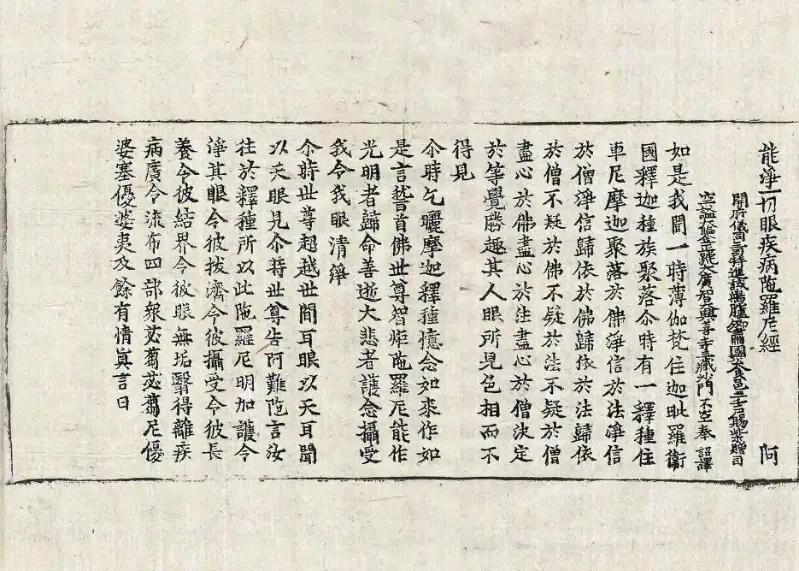 能淨一切眼疾病陁羅尼經 阿
開府儀同三司特進試鴻臚卿肅國公食邑三千戶賜紫贈司
空謚大鑒正号大廣智大興善寺三藏沙門不空奉 詔譯
如是我聞一時薄伽梵住迦毗羅衛
國釋迦種族聚落尒時有一釋種住
車尼摩迦聚落於佛淨信於法淨信
於僧淨信歸依於佛歸依於法歸依
於僧不疑於佛不疑於法不疑於僧
盡心於佛盡心於法盡心於僧決定
於等覺勝趣其人眼所見色相而不
得見
尒時乞曬摩迦釋種憶念如來作如
是言嵆首佛世尊智炬陁羅尼能作
光明者歸命善逝大悲者護念攝受
我令我眼清淨
尒時世尊超越世間耳眼以天耳聞
以天眼見尒時世尊告阿難陁言汝
往於釋種所以此陁羅尼明加護令
淨其眼令彼拔濟令彼攝受令彼長
養令彼結界令彼眼無垢翳得離疾
病廣令流布四部衆苾蒭苾蒭尼優
婆塞優婆夷及餘有情真言曰